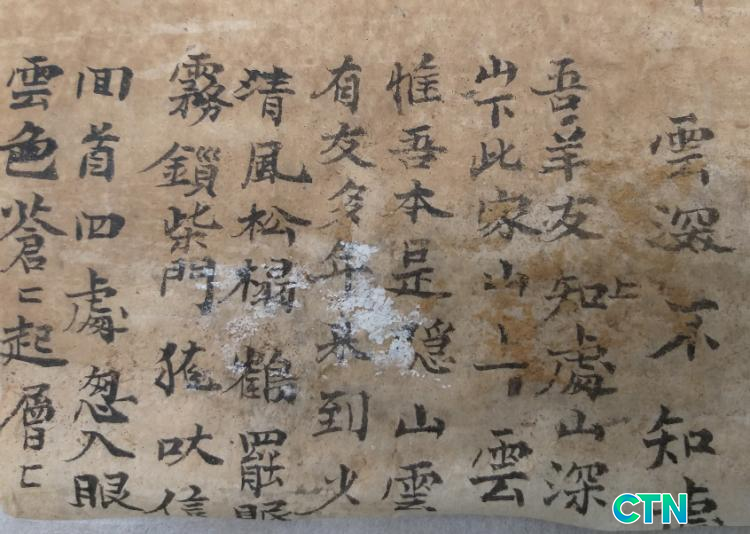 雲深不知處
吾羊友知處上山深
山下此家山上雲
惟吾本是隱山雲
有友多年未到少
清風松榻鶴罷眠
霧鎖柴門猿吠信
回首四處忽入眼
雲色蒼〻起層〻
CTN